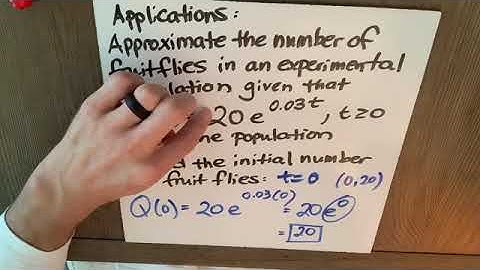 Applications:
Approximate the number of
fruit flies in an experimental
lation given that
20 e^0.03t, t≥0
ne population
d the initial number
fruit flies: t=0 (0,20)
Q(0) = 20 e^0.03(0) = 20 e^0
= 20